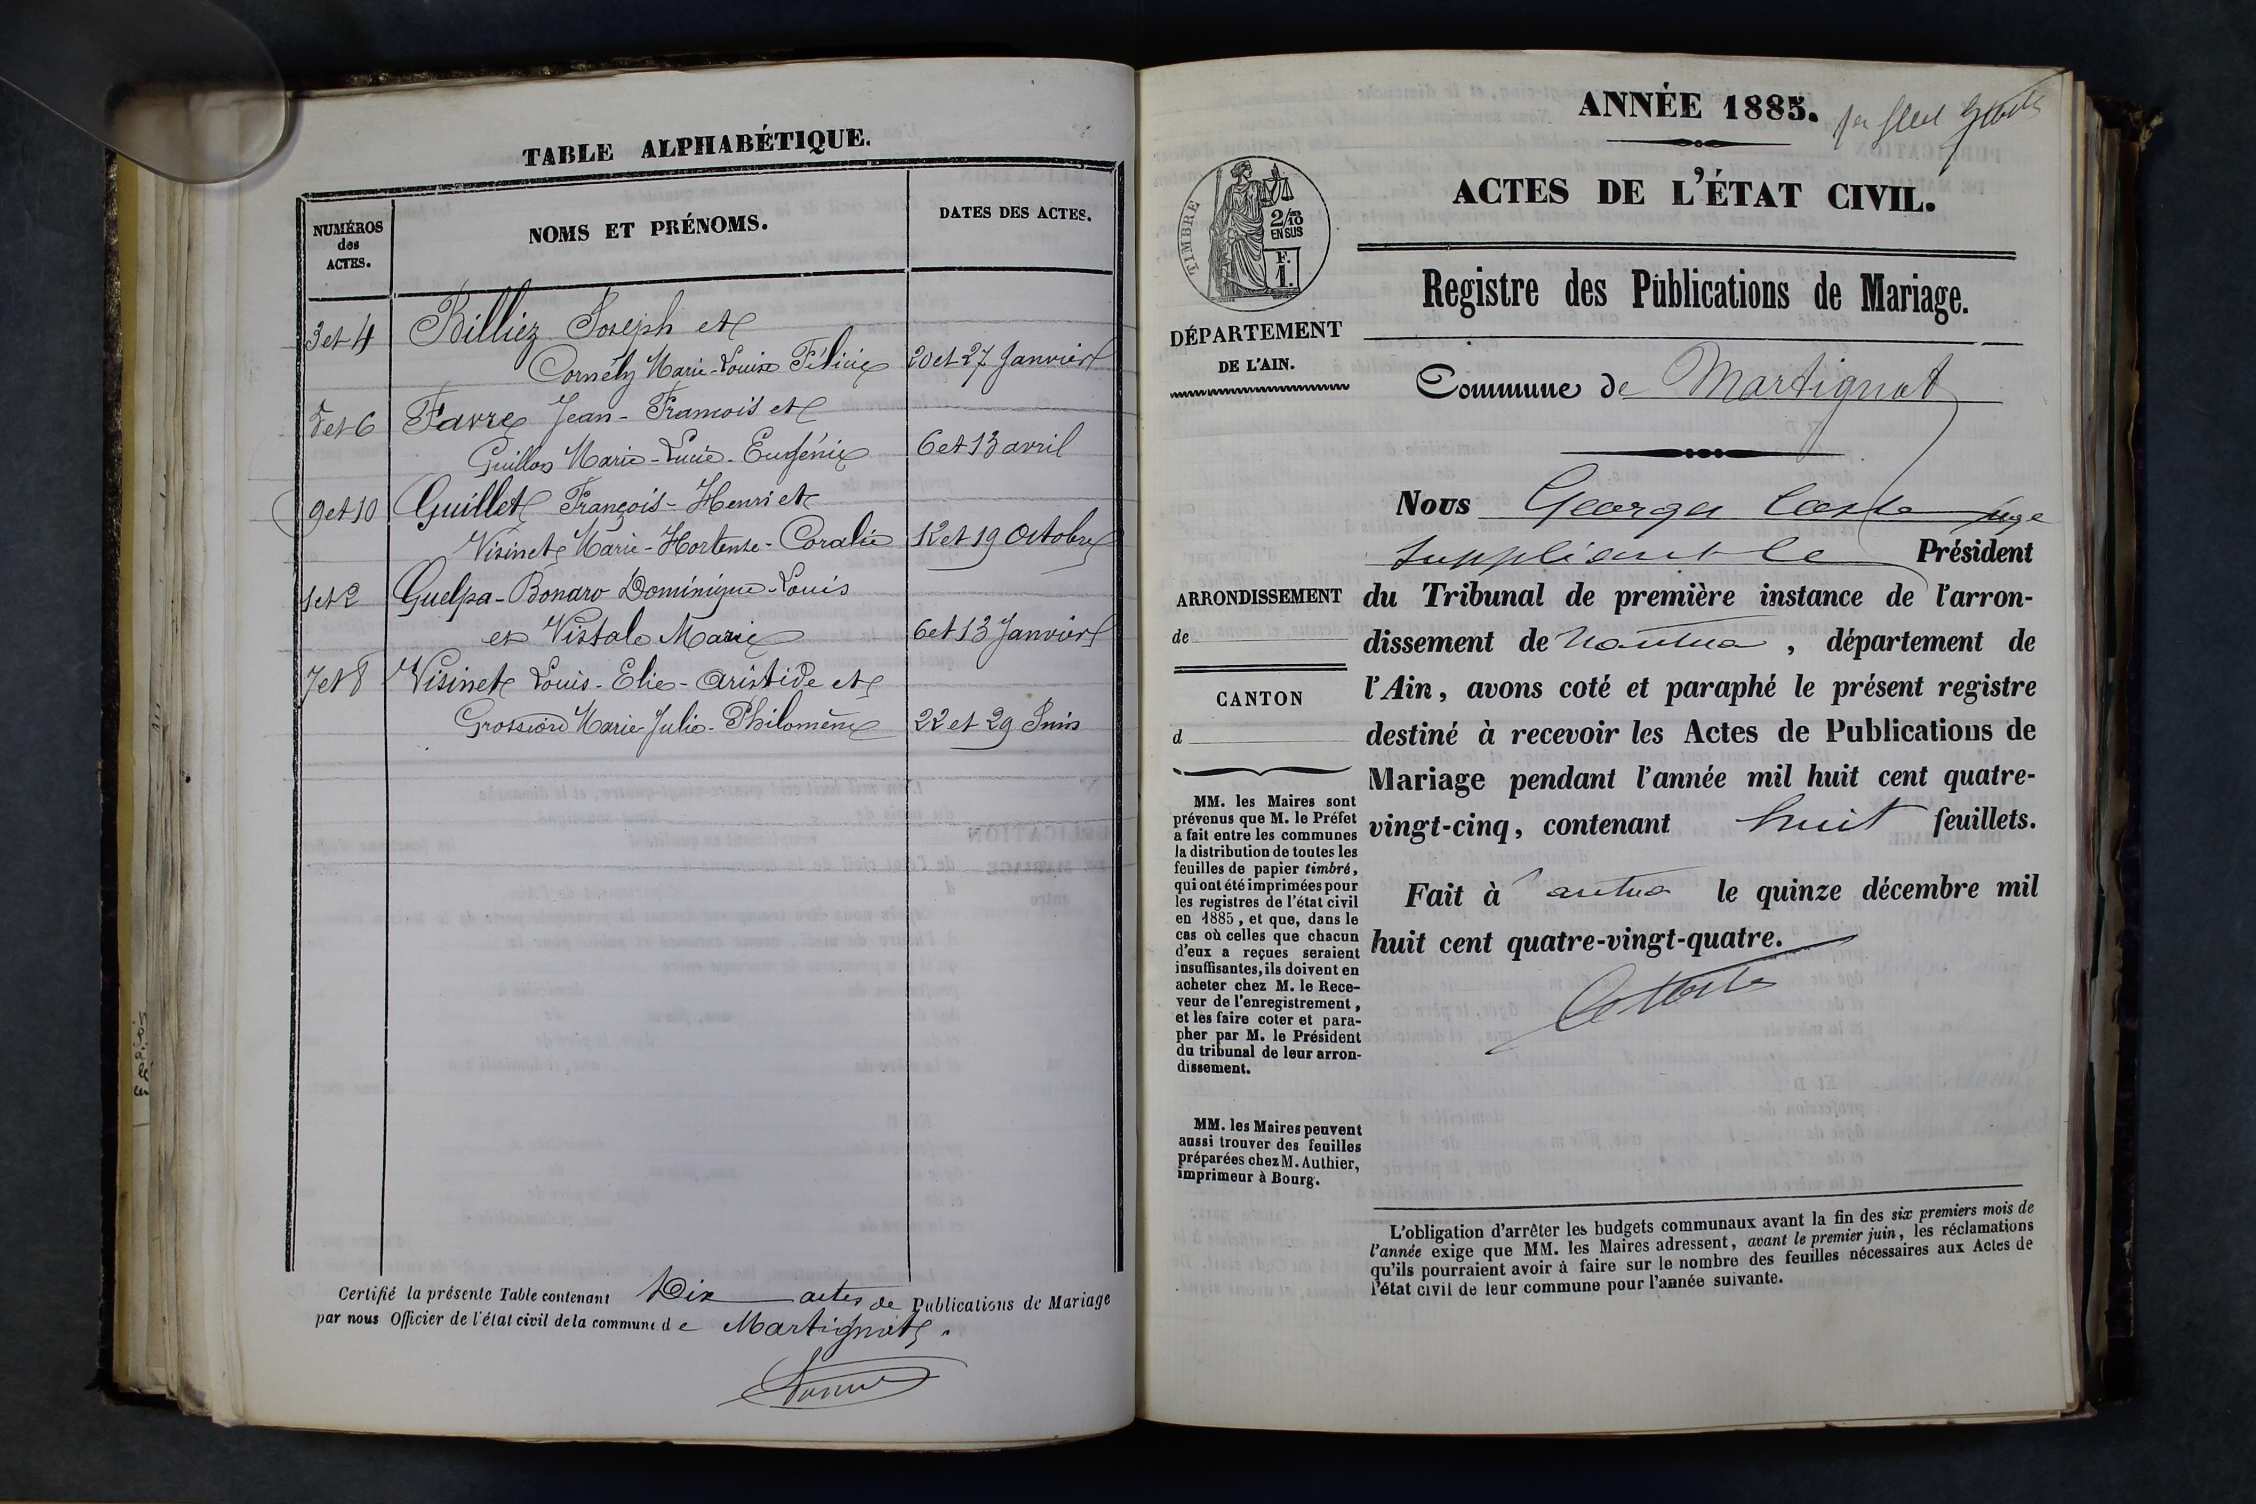 TABLE ALPHABÉTIQUE.
NUMÉROS
des
ACTES.
NOMS ET PRÉNOMS.
DATES DES ACTES.
3 et 4 Billiez Joseph et
Cornély Marie-Louise Félicie 20 et 27 Janvier
5 et 6 Favre Jean-François et
Guillon Marie-Lucie-Eugénie 6 et 13 avril
9 et 10 Guillet François-Henri et
Visinet Marie-Hortense-Coralie 12 et 19 Octobre
1 et 2 Guelpa-Bonaro Dominique-Louis
et Vistalo Marie 6 et 13 Janvier
7 et 8 Visinet Louis-Elie-Aristide et
Grossiord Marie-Julie-Philomène 22 et 29 Juin
Certifié la présente Table contenant Dix actes de Publications de Mariage
par nous Officier de l'état civil de la commune de Martignat.
ANNÉE 1885.
ACTES DE L'ÉTAT CIVIL.
TIMBRE
2/10
EN SUS
F.
1.
Registre des Publications de Mariage.
DÉPARTEMENT
DE L'AIN.
Commune de Martignat
Nous Georges juge
suppléant le Président
ARRONDISSEMENT
de
CANTON
d
du Tribunal de première instance de l'arron-
dissement de Nantua, département de
l'Ain, avons coté et paraphé le présent registre
destiné à recevoir les Actes de Publications de
Mariage pendant l'année mil huit cent quatre-
vingt-cinq, contenant huit feuillets.
Fait à Nantua le quinze décembre mil
huit cent quatre-vingt-quatre.
MM. les Maires sont
prévenus que M. le Préfet
a fait entre les communes
la distribution de toutes les
feuilles de papier timbré,
qui ont été imprimées pour
les registres de l'état civil
en 1885, et que, dans le
cas où celles que chacun
d'eux a reçues seraient
insuffisantes, ils doivent en
acheter chez M. le Rece-
veur de l'enregistrement,
et les faire coter et para-
pher par M. le Président
du tribunal de leur arron-
dissement.
MM. les Maires peuvent
aussi trouver des feuilles
préparées chez M. Authier,
imprimeur à Bourg.
L'obligation d'arrêter les budgets communaux avant la fin des six premiers mois de
l'année exige que MM. les Maires adressent, avant le premier juin, les réclamations
qu'ils pourraient avoir à faire sur le nombre des feuilles nécessaires aux Actes de
l'état civil de leur commune pour l'année suivante.